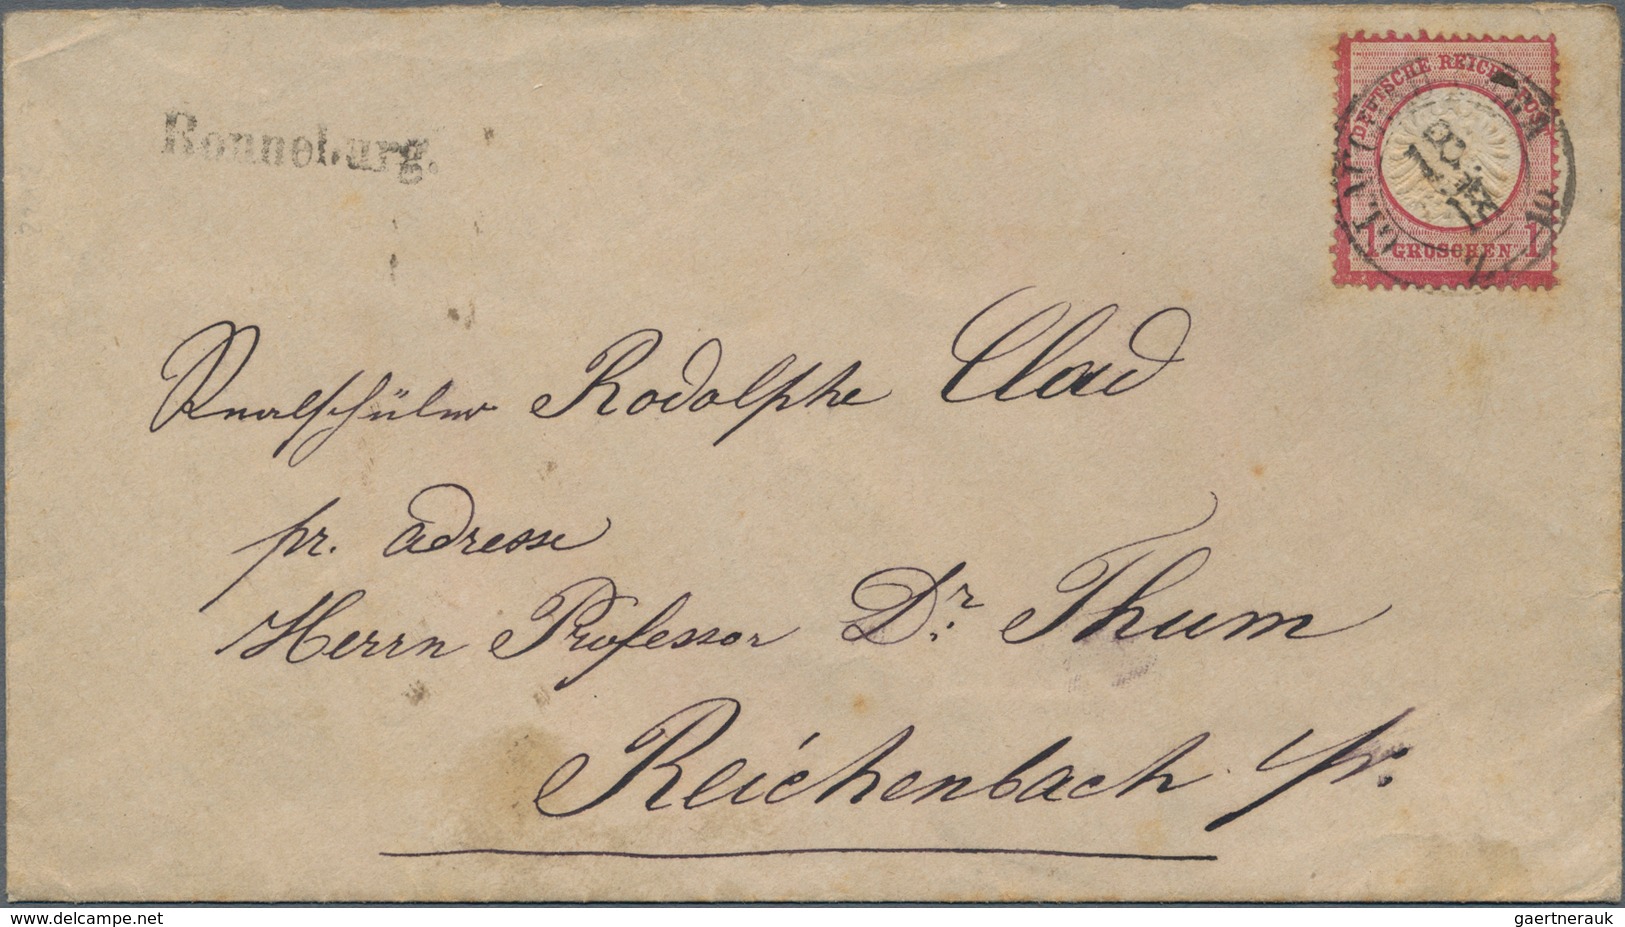 Ronneburg.
DEUTSCHE REICHS-POST
1 GROSCHEN 1
18
Realschüler Rodolphe Clad
pr. adresse
Herrn Professor Dr. Thum
Reichenbach
delcampe.net
gaertnerauk